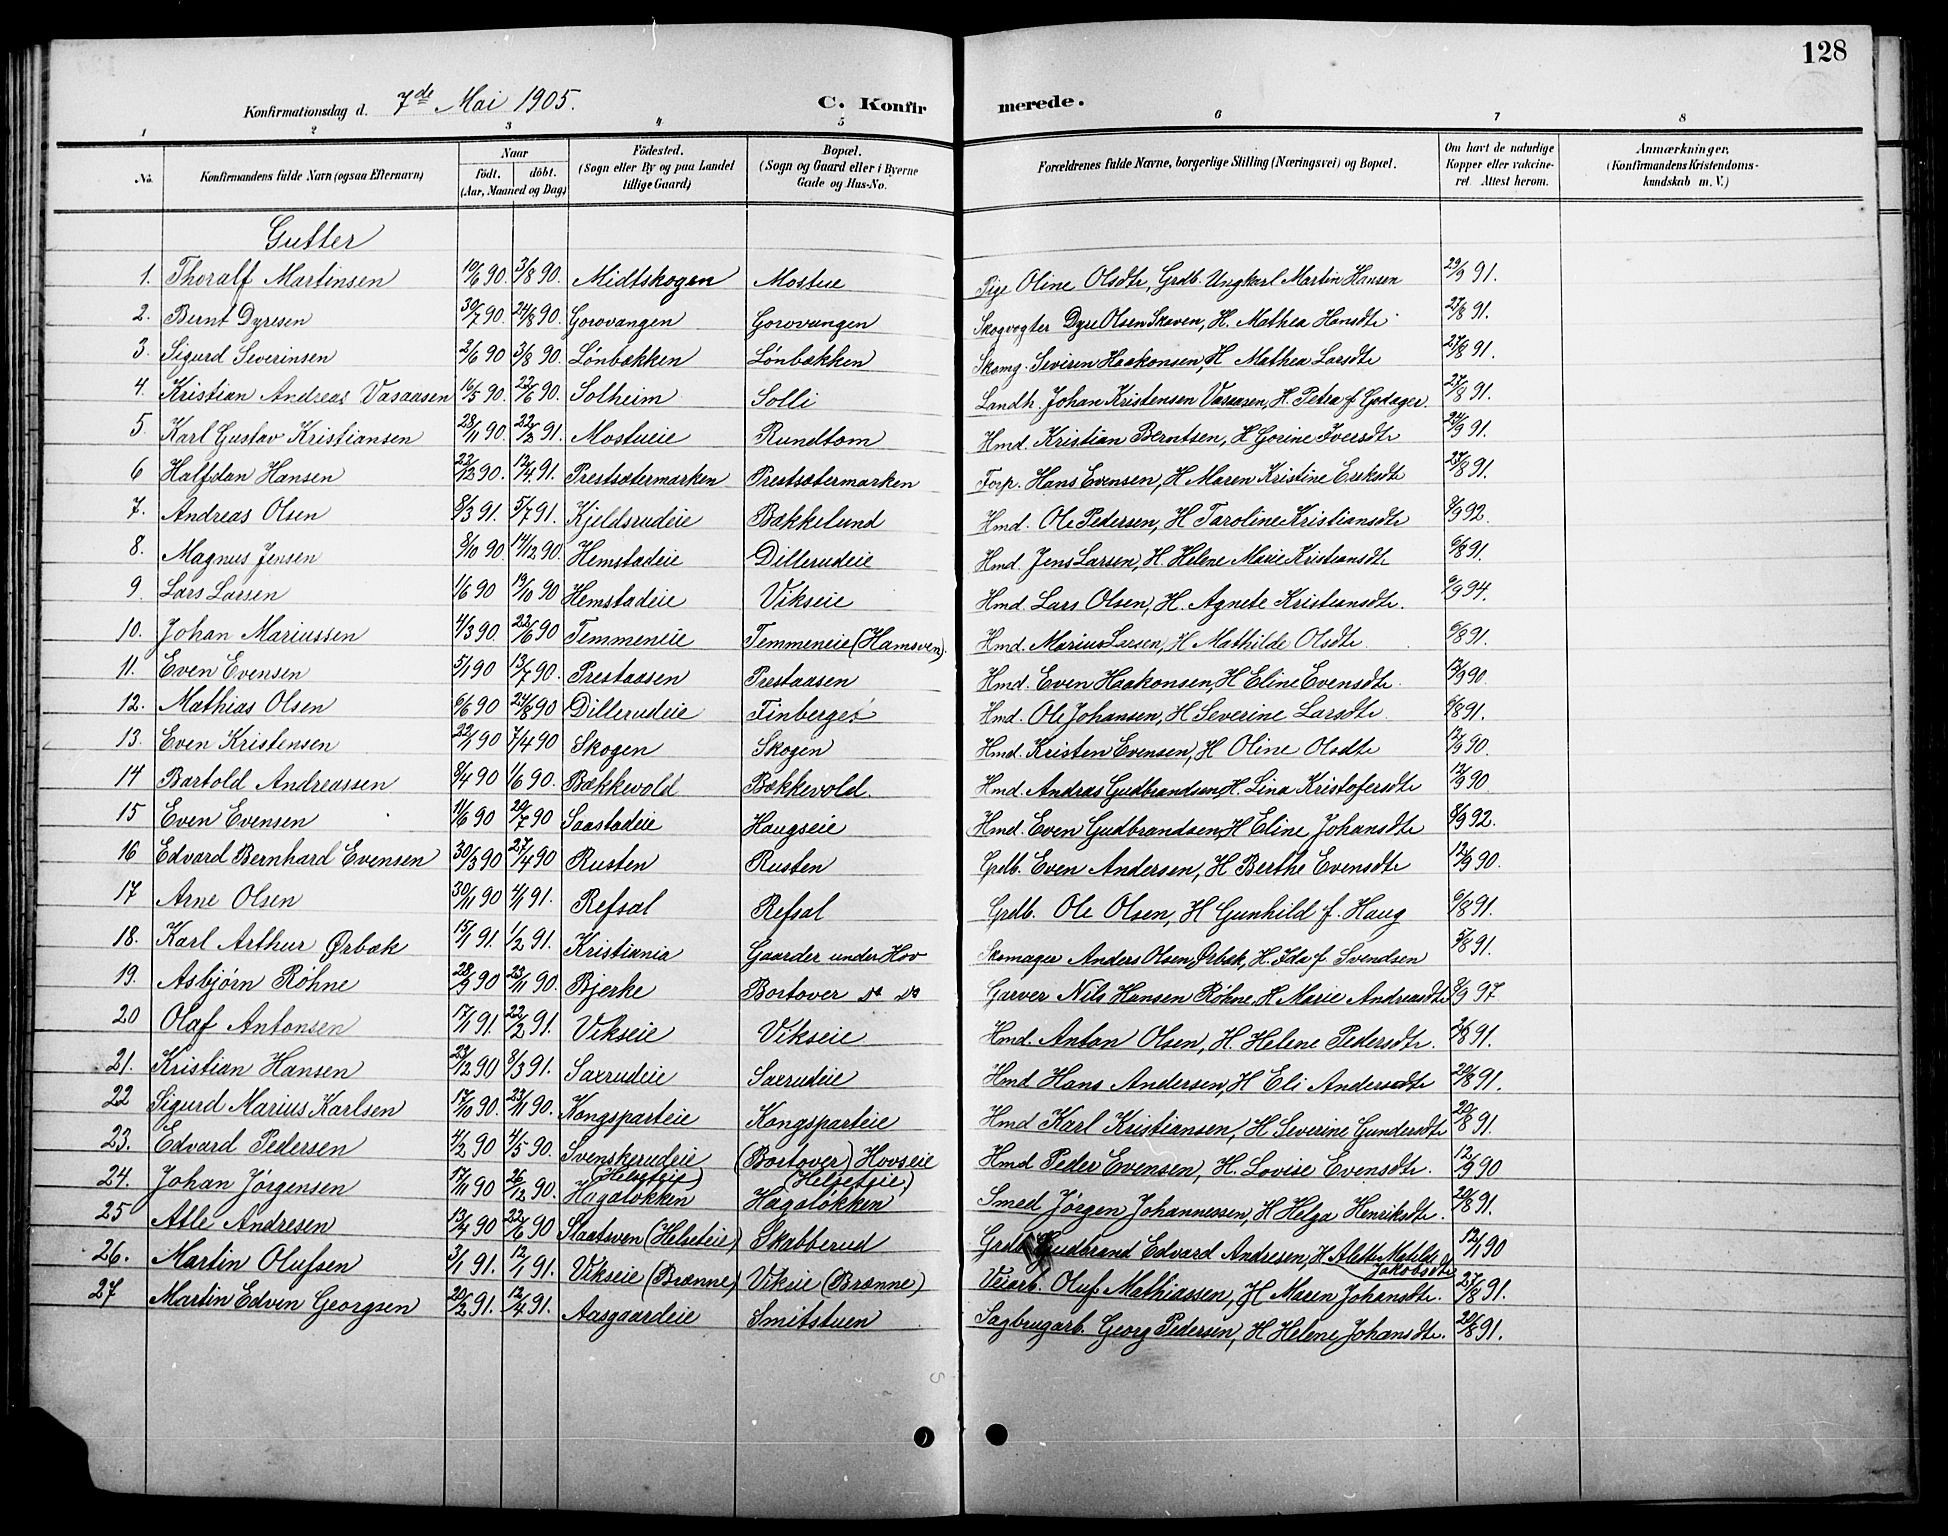 128
Konfirmationsdag d. 7de Mai 1905. C. Konfirmerede.
1 2 3 4 5 6 7 8
No. Konfirmandens fulde Navn (ogsaa Efternavn) Naar født. døbt. (Aar, Maaned og Dag) Fødested. (Sogn eller By og paa Landet tillige Gaard) Bopæl. (Sogn og Gaard eller i Byerne Gade og Hus-No. Forældrenes fulde Navne, borgerlige Stilling (Næringsvei) og Bopæl. Om havt de naturlige Kopper eller vakcineret. Attest herom. Anmærkninger, (Konfirmandens Kristendomskundskab m. V.)
Gutter
1. Thoralf Martinsen 10/6 90. 3/8 90. Midtskogen Mostue Pige Oline Olsdtr, Grdb. Ungkarl Martin Hansen 29/9 91.
2. Bernt Dyresen 30/7 90. 24/8 90. Gorovangen Gorovangen Skogvogter Dyre Olsen Skoven, H. Mathea Hansdtr 27/8 91.
3. Sigurd Severinsen 2/6 90 3/8 90. Lønbækken Lønbækken Skomg. Seviren Haakonsen, H Mathea Larsdtr 27/8 91.
4. Kristian Andreas Vasaasen 16/5 90. 22/6 90. Solheim Solli Landh. Johan Kristensen Vasaasen, H. Petra f. Godager. 27/8 91.
5. Karl Gustav Kristiansen 28/11 90. 22/2 91. Mostueie Rundtom Hmd. Kristian Berntsen, H Gorine Iversdtr 24/9 91.
6 Halfdan Hansen 22/12 90. 12/4 91. Prestsætermarken Prestsætermarken Torp. Hans Evensen, H Maren Kristine Eriksdtr 27/8 91.
7. Andreas Olsen 8/3 91. 5/7 91. Kjeldsrudeie Bækkelund Hmd. Ole Pedersen, H Taroline Kristiansdtr 8/9 92.
8. Magnus Jensen 8/10 90. 14/12 90. Hemstadeie Dillerudeie Hmd. Jens Larsen, H. Helene Marie Kristiansdtr 6/8 91.
9. Lars Larsen 1/6 90 19/10 90 Hemstadeie Vikseie Hmd. Lars Olsen, H. Agnete Kristiansdtr. 6/9 94.
10. Johan Mariussen 4/3 90. 22/6 90 Temmeneie Temmeneie (Hamsven) Hmd. Marius Larsen, H Mathilde Olsdtr 6/8 91.
11. Even Evensen 5/1 90 13/7 90. Prestaasen Prestaasen Hmd. Even Haakonsen, H Eline Evensdtr 12/9 90.
12. Mathias Olsen 6/6 90 24/8 90 Dillerudeie Finberget Hmd. Ole Johansen, H Severine Larsdtr 6/8 91.
13. Even Kristensen 22/1 90 7/4 90 Skogen Skogen Hmd. Kristen Evensen, H Oline Olsdtr 12/9 90.
14 Bartold Andreassen 8/4 90 1/6 90. Bækkevold Bækkevold. Hmd. Andras Gudbrandsen, H. Lina Kristofersdtr 12/9 90
15 Even Evensen 11/6 90 20/7 90 Saastadeie Haugseie Hmd. Even Gudbrandsen, H Eline Johansdtr 8/9 92.
16 Edvard Bernhard Evensen 30/3 90 27/4 90 Rusten Rusten Grdb. Even Andersen, H Berthe Evensdtr 12/9 90.
17 Arne Olsen 30/11 90 4/1 91. Refsal Refsal Grdb. Ole Olsen, H Gunhild f. Haug 6/8 91.
18. Karl Arthur Ørbæk 15/1 91. 1/2 91. Kristiania Gaarder under Hov Skomager Anders Olsen Ørbæk, H. Ida f. Svendsen 5/8 91.
19. Asbjørn Røhne 28/9 90 23/11 90. Bjerke Bortover do do Garver Nils Hansen Røhne, H Marie Andreasdtr 8/9 97.
20 Olaf Antonsen 17/1 91. 22/2 91. Vikseie Vikseie Hmd. Anton Olsen, H. Helene Pedersdtr. 2/8 91.
21. Kristian Hansen 23/12 90 8/3 91. Saxrudeie Saxrudeie Hmd Hans Andersen, H Eli Andersdtr 20/8 91.
22 Sigurd Marius Karlsen 17/10 90. 23/11 90. Kongsparteie Kongsparteie Hmd Karl Kristiansen, H Severine Gundersdtr 20/8 91.
23. Edvard Pedersen 4/2 90 4/5 90. Svenskerudeie (Bortover) Hovseie Hmd Peder Evensen, H. Lovise Evensdtr. 12/9 90
24. Johan Jørgensen 17/11 90 26/12 90. (Helseteie) Hagaløkken (Helseteie) Hagaløkken Smed Jørgen Johannessen, H Helga Henriksdtr. 20/8 91.
25 Atle Andresen 13/4 90 22/6 90 Staatsven (Helseteie) Skabberud Grdb Gudbrand Edvard Andresen, H Alette Matilde Jakobsdtr 12/1 90
26. Martin Olufsen 3/1 91. 12/1 91. Vikseie (Brænne) Viksie (Brænne) Veiarb. Oluf Mathiassen, H Maren Johansdtr. 27/8 91.
27 Martin Edvin Georgsen 20/2 91. 12/4 91. Aasgaardeie Smitstuen Sagbrugarb. Georg Pedersen, H Helene Johansdtr. 20/8 91.